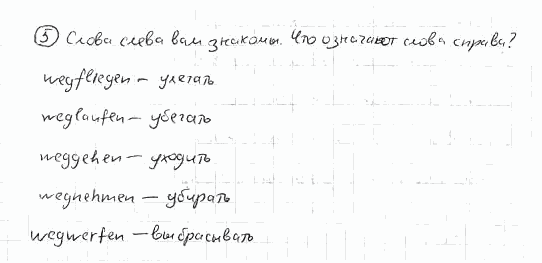 5 Слова слева вам знакомы. Что означают слова справа?
wegfliegen – улетать
weglaufen – убегать
weggehen – уходить
wegnehmen – убирать
wegwerfen – выбрасывать